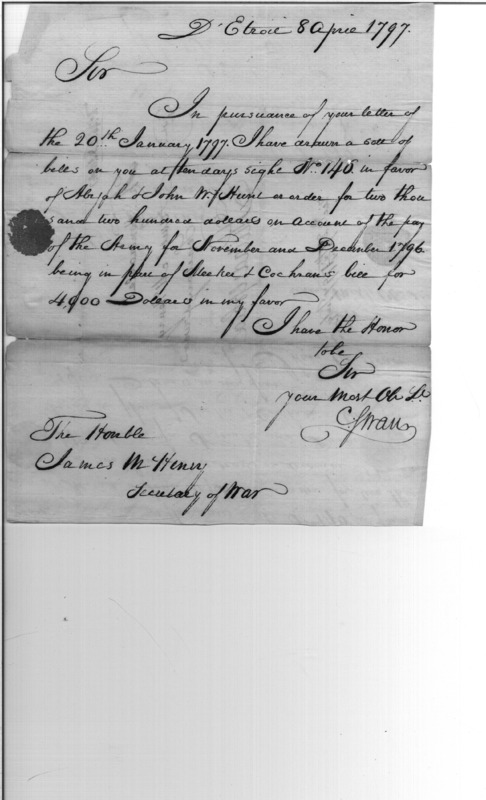 D'Etroit 8 April 1797.
Sir
In pursuance of your letter of
the 20.th January 1797. I have drawn a sett of
bills on you at ten days sight No. 148 in favor
of Abijah & John W. Hunt or order for two thou
sand two hundred dollars on account of the pay
of the Army for November and December 1796.
being in part of Meeker & Cochran's bill for
4000 Dollars in my favor
I have the Honor
to be
Sir
your Most Ob St.
C Swan
The Honble
James McHenry
Secretary of War